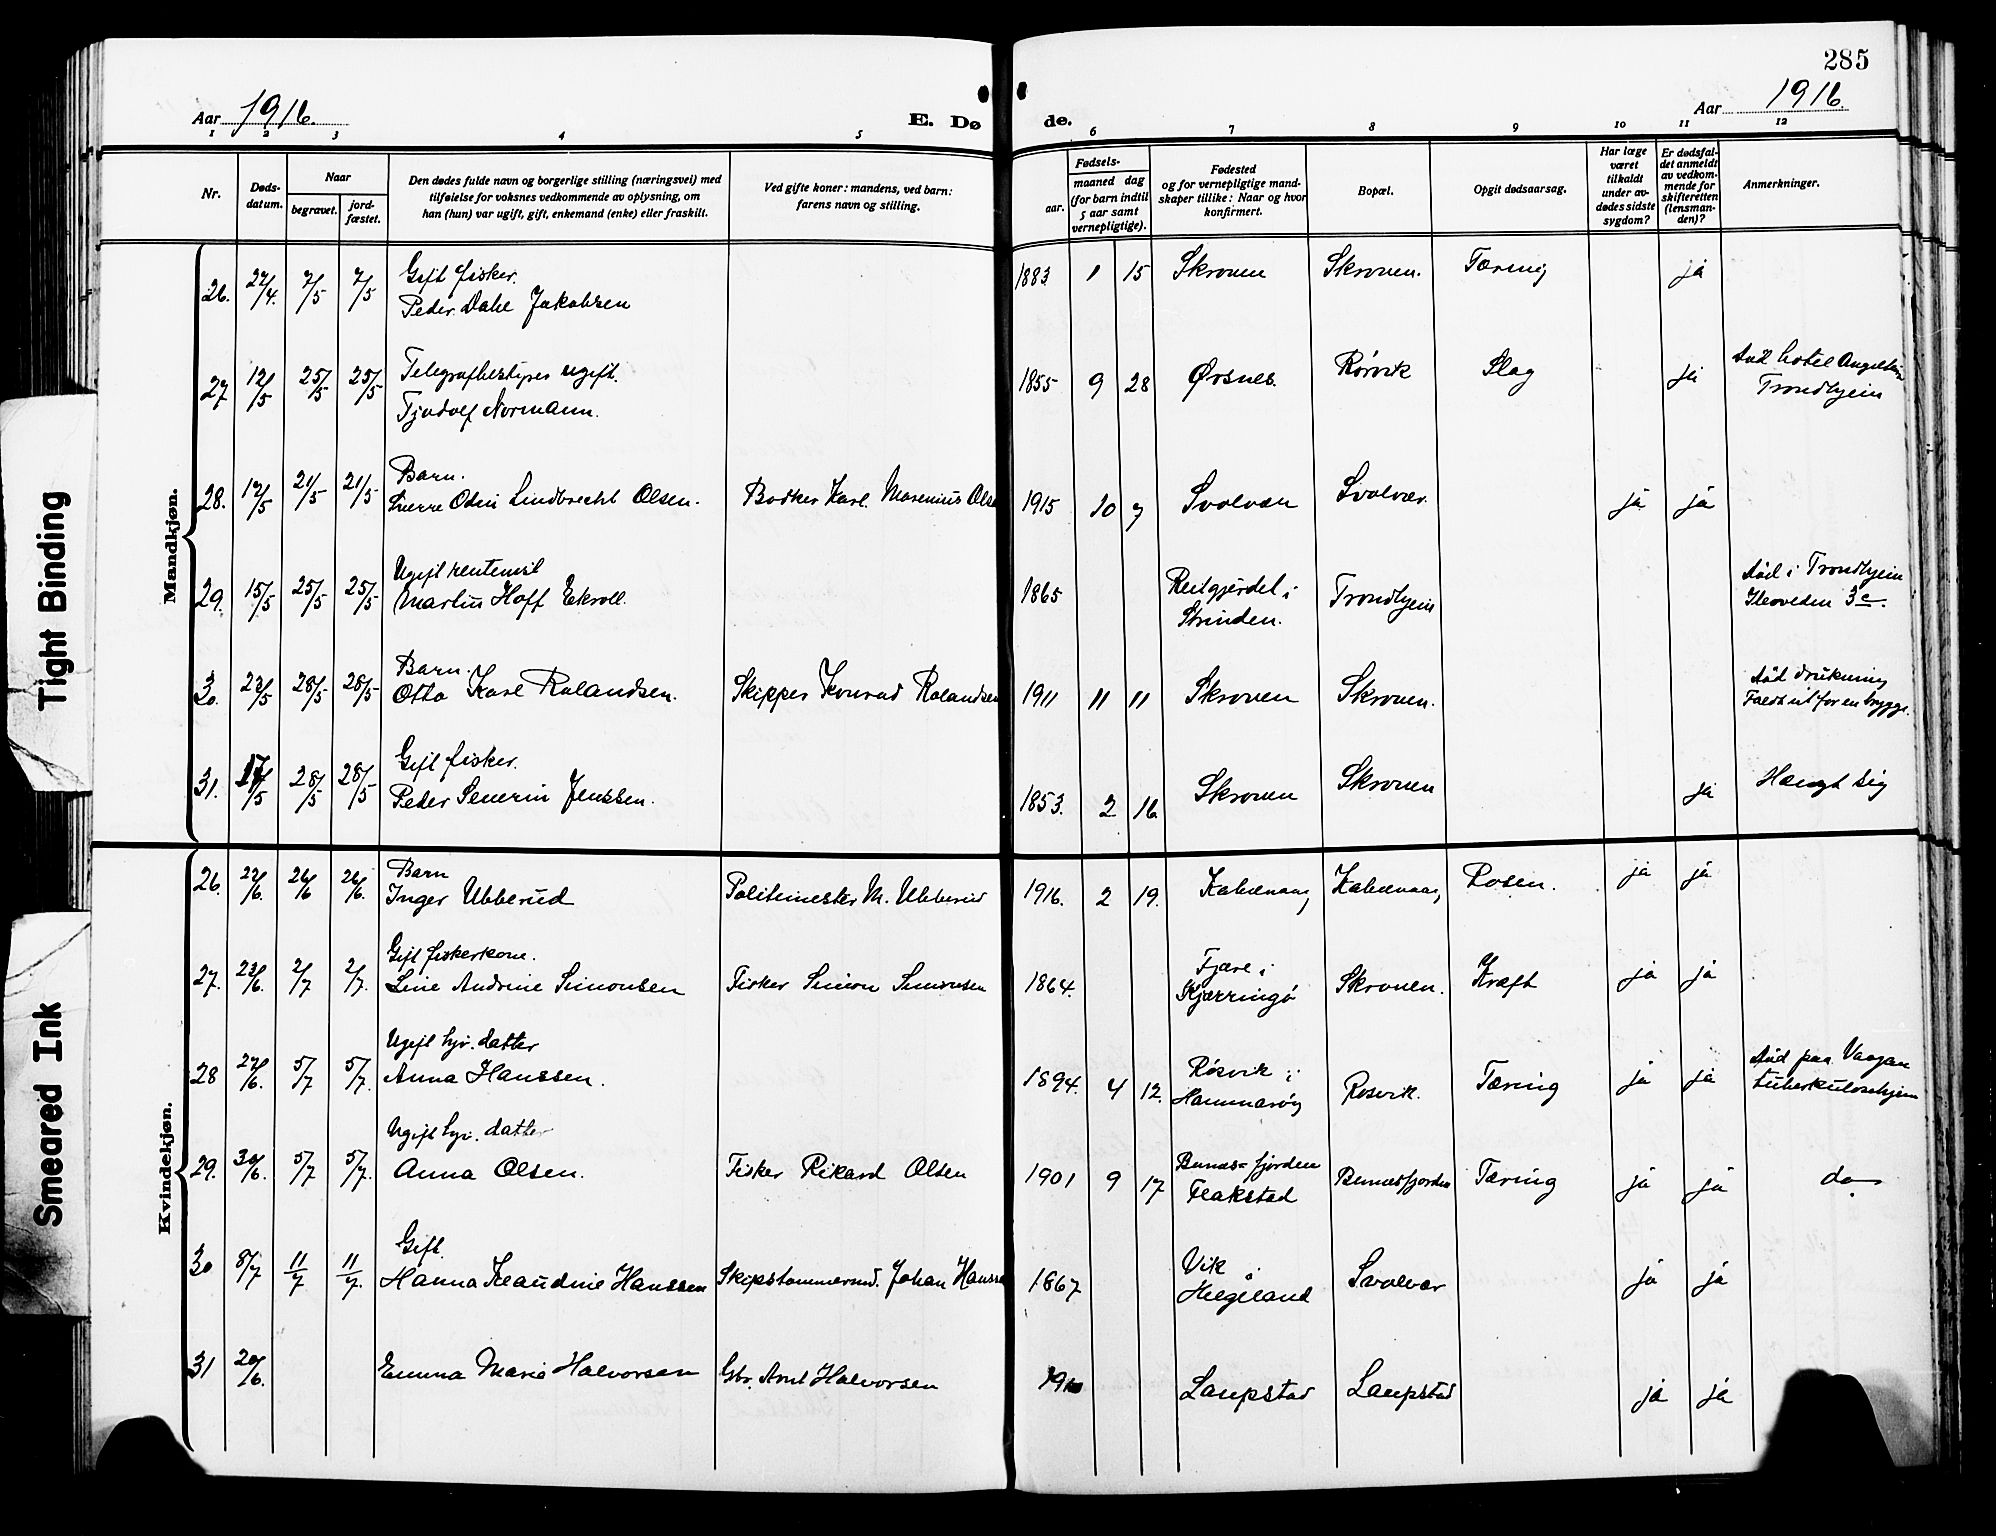 285
Aar 1916.
E. Dø
de.
Aar 1916.
1 2 3 4 5 6 7 8 9 10 11 12
Nr.
Døds-
datum.
Naar
begravet.
jord-
fæstet.
Den dødes fulde navn og borgerlige stilling (næringsvei) med
tilføielse for voksnes vedkommende av oplysning, om
han (hun) var ugift, gift, enkemand (enke) eller fraskilt.
Ved gifte koner: mandens, ved barn:
farens navn og stilling.
Fødsels-
aar.
maaned dag
(for barn indtil
5 aar samt
vernepligtige).
Fødested
og for vernepligtige mand-
skaper tillike: Naar og hvor
konfirmert.
Bopæl.
Opgit dødsaarsag.
Har læge
været
tilkaldt
under av-
dødes sidste
sygdom?
Er dødsfal-
det anmeldt
av vedkom-
mende for
skifteretten
(lensman-
den)?
Anmerkninger.
Mandkjøn.
Gift fisker.
26. 27/4. 7/5 7/5 Peder Dahl Jakobsen 1883 1 15 Skroven Skroven. Tæring ja
Telegrafbestyrer ugift.
27 12/5 25/5 25/5 Tjodolf Normann. 1855 9 28 Ørsnes. Rørvik Slag ja
Trondhjem
Barn.
28. 17/5 21/5 21/5 Sverre Odin Lindbrecht Olsen. Bødker Karl Marenius Olse 1915 10 7 Svolvær Svolvær. ja ja
Ugift rentenist
29. 15/5 25/5 25/5 Martin Hoff Ekroll. 1865 Reitgjerdet i Strinden. Trondhjem
Død i Trondhjem
Ileveden 3c.
Barn.
30. 23/5 28/5 28/5 Otto Karl Rolandsen. Skipper Konrad Rolandsen 1911 11 11 Skroven Skroven.
Død drukning
Faldt ut for en brygge.
Gift fisker.
31. 17/5 28/5 28/5 Peder Severin Jenssen. 1853. 2 16 Skroven Skroven ja Hængt sig
Kvindekjøn.
Barn
26. 22/6. 26/6 26/6. Inger Ubberud Politimester M. Ubberud 1916. 2 19. Kabelvaag Kabelvaag Rosen. ja ja
Gift fiskerkone.
27. 23/6. 2/7 2/7. Line Andrine Simonsen Fisker Simon Simonsen 1864. Fjære i Kjerringø Skroven. Kræft ja ja
Ugift hjv. datter
28 27/6. 5/7 5/7. Anna Hanssen. 1894. 4 12. Røsvik i Hammarøy Rosvik. Tæring ja ja
Død paa Vaagan
tuberkulosehjem
Ugift hjv. datter
29. 30/6. 5/7 5/7. Anna Olsen. Fisker Rikard Olsen 1901 9 17 Bunesfjorden Flakstad Bunesfjorden Tæring ja ja do
Gift.
30 8/7 11/7 11/7. Hanna Klaudine Hanssen Skipstømmermd. Johan Hansse 1867 Vik Helgeland Svolvær ja ja
31 20/6. Emma Marie Halvorsen Gbr. Arnt Halvorsen Laupstad Laupstad ja ja
Tight Binding
Smeared Ink